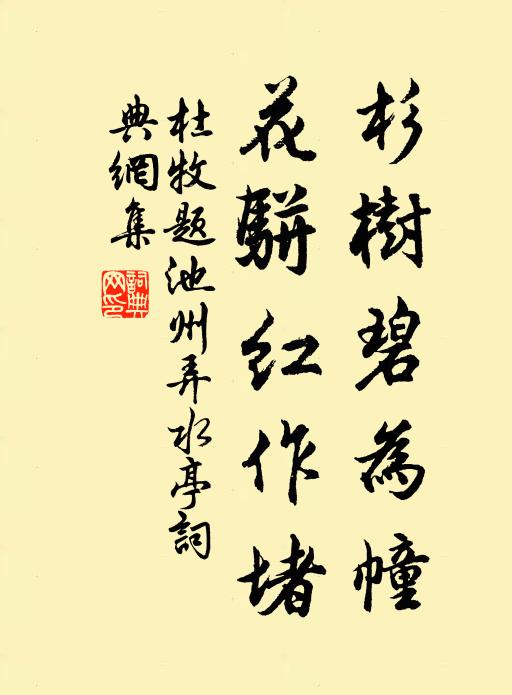 杉樹碧為幢
花駢紅作堵
杜牧題池州弄水亭詞
典網集
詞典網印